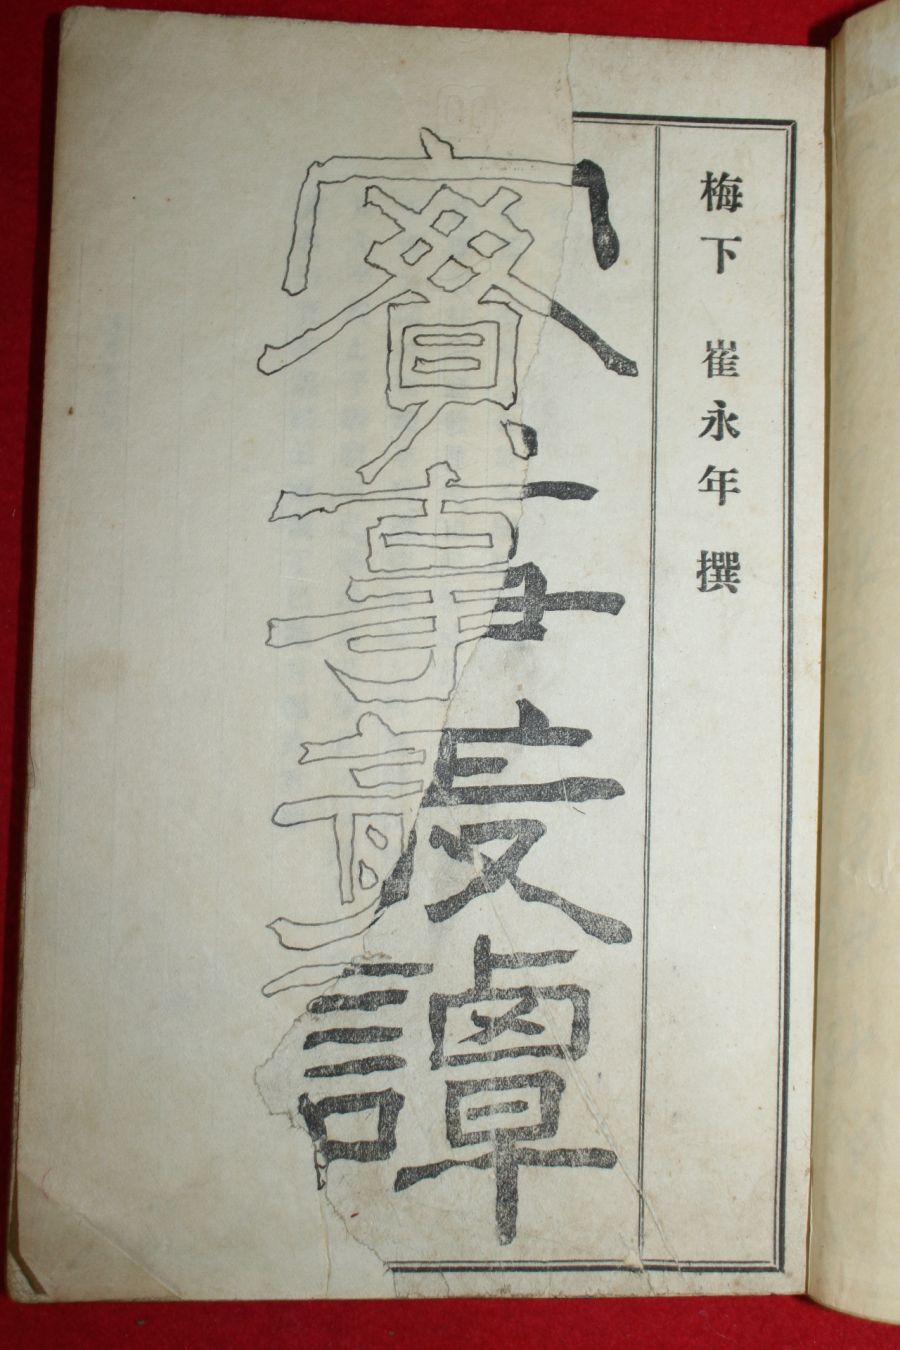 梅下 崔永年 撰
實事叢譚